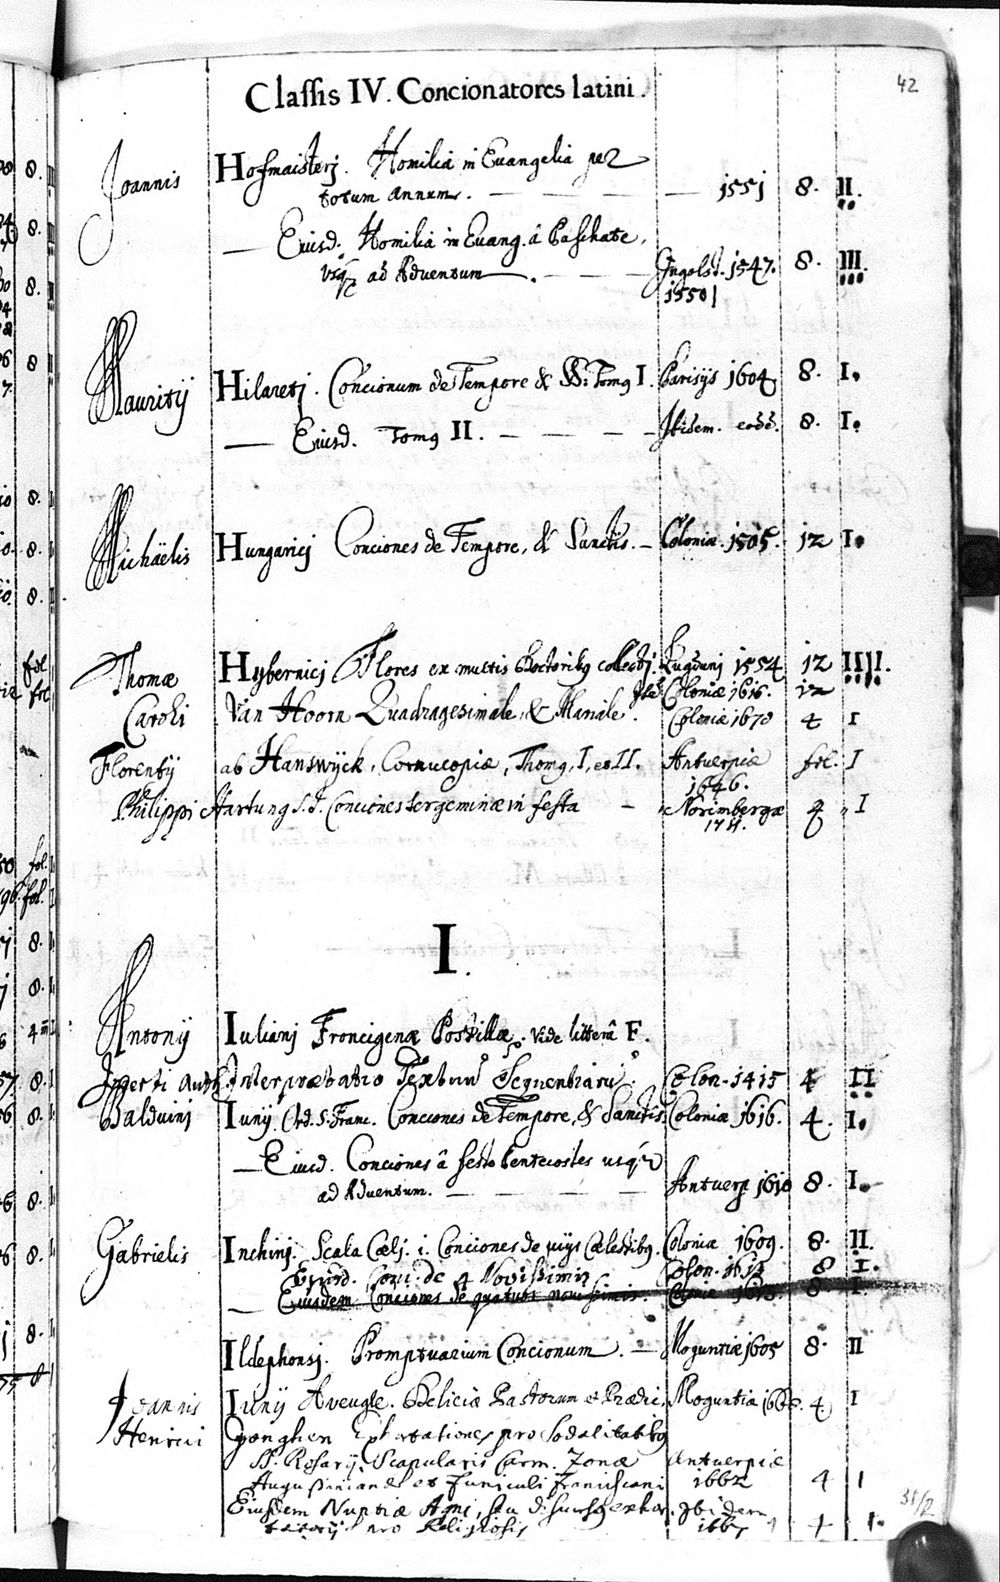 42
Classis IV. Concionatores latini.
Joannis Hofmaisterj. Homiliæ in Euangelia per
totum Annum. 1551 8. II.
Eiusd. Homiliæ in Euang. â Paschate,
usq3 ad Aduentum. Ingolst. 1547. 8. III.
1550
Mauritij Hilaretj. Concionum de Tempore & SS: Tomq I. Parisijs 1604 8. I.
Eiusd. Tomq II. Ibidem. eod. 8. I.
Michäelis Hungaricj Conciones de Tempore, & Sanctis. Coloniæ. 1505. 12 I.
Thomæ Hybernicj Flores ex multis Doctoribq collectj. Lugdunj 1554 12 IIII.
Coloniæ 1616. 12
Caroli Van Hoorn Quadragesimale, & Mariale. Coloniæ 1670 4 I
Florentij ab Hanswijck, Cornucopiæ, Thomq, I, et II. Antuerpiæ fol. I
1646.
Philippi Hartung S.J. Conciones tergeminæ in festa Norimbergæ 4 I
1711.
I.
Antonij Iulianj Froncigenæ Postillæ. Vide litterâ F.
Incerti Auth. Interprætatio Textuū Sequentiarū. Colon. 1415 4 II
Balduinj Iunij Ord. S. Franc. Conciones de Tempore, & Sanctis. Coloniæ 1616. 4. I.
Eiusd. Conciones â festo Pentecostes usq3
ad Aduentum. Antuerp 1610 8. I.
Gabrielis Inchinj. Scala Cœlj. i. Conciones de vijs Cœlestibq. Coloniæ 1609. 8. II.
Eiusd. Conc: de 4 Novissimis Colon. 1613 8 I.
Eiusdem Conciones de quatuor novissimis Coloniæ 8 I.
Ildephonsj. Promptuarium Concionum. Moguntiæ 1605 8. II
Joannis Iunij Aveugle. Deliciæ Pastorum et Prædic. Moguntiæ 4 I
Henrici Jonghen Exhortationes pro Sodalitatibq
SS. Rosarij, Scapularis Carm. Zonæ Antuerpiæ
Augustinianæ et funiculi franciscani 1662 4 I
Eiusdem Nuptiæ Agni, seu discursq exhor. Ibidem
tatorij pro Religiosis 1667 4 I.
31/2